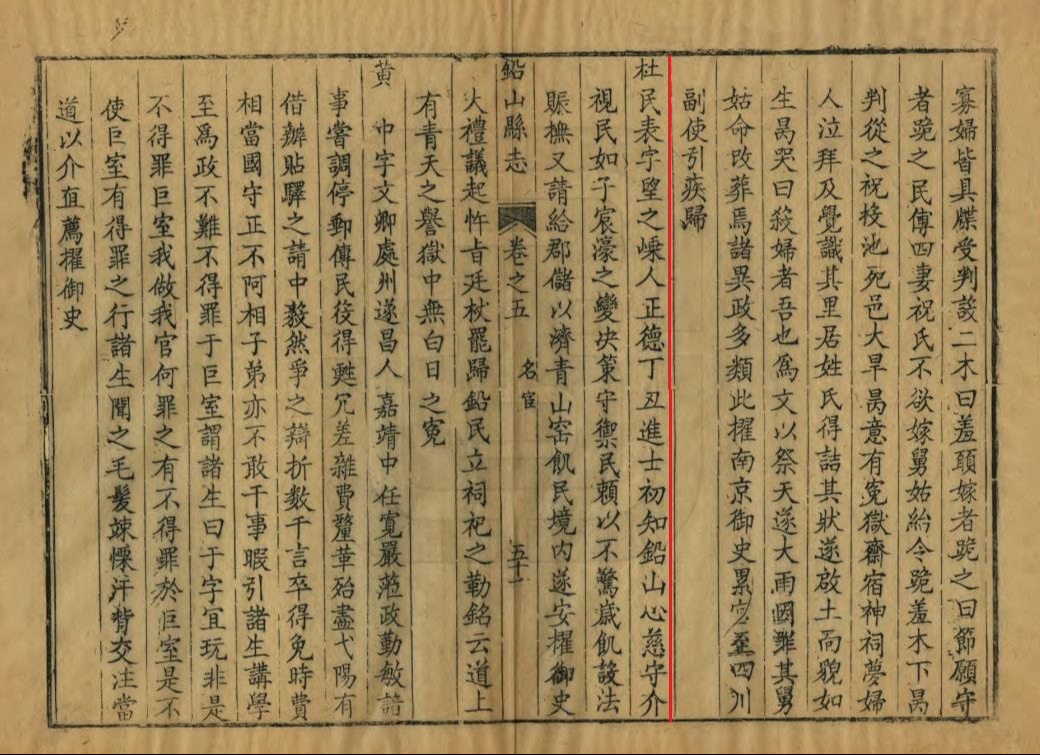 寡婦皆具牒受判設二木曰羞願嫁者跪之曰節願守
者跪之民傅四妻祝氏不欲嫁舅姑紿令跪羞木下昺
判從之祝投池死邑大旱昺意有寃獄齋宿神祠夢婦
人泣拜及覺識其里居姓氏得詰其狀遂啟土而貌如
生昺哭曰殺婦者吾也為文以祭天遂大雨圄罪其舅
姑命改葬焉諸異政多類此擢南京御史累官至四川
副使引疾歸
杜民表字望之嵊人正德丁丑進士初知鉛山心慈守介
視民如子宸濠之變決策守禦民賴以不驚歲飢設法
賑撫又請給郡儲以濟青山窑飢民境内遂安擢御史
鉛山縣志 卷之五 名宦 五十一
大禮議起忤旨廷杖罷歸鉛民立祠祀之勒銘云道上
有青天之譽獄中無白日之寃
黄 中字文卿處州遂昌人嘉靖中任寬嚴蒞政勤敏諳
事嘗調停郵傳民役得甦冗差雜費釐革殆盡弋陽有
借辦貼驛之請中毅然爭之辯折数千言卒得免時費
相當國守正不阿相子弟亦不敢干事暇引諸生講學
至爲政不難不得罪于巨室謂諸生曰于字宜玩非是
不得罪巨室我做我官何罪之有不得罪於巨室是不
使巨室有得罪之行諸生聞之毛髮竦慄汗背交注當
道以介直薦擢御史